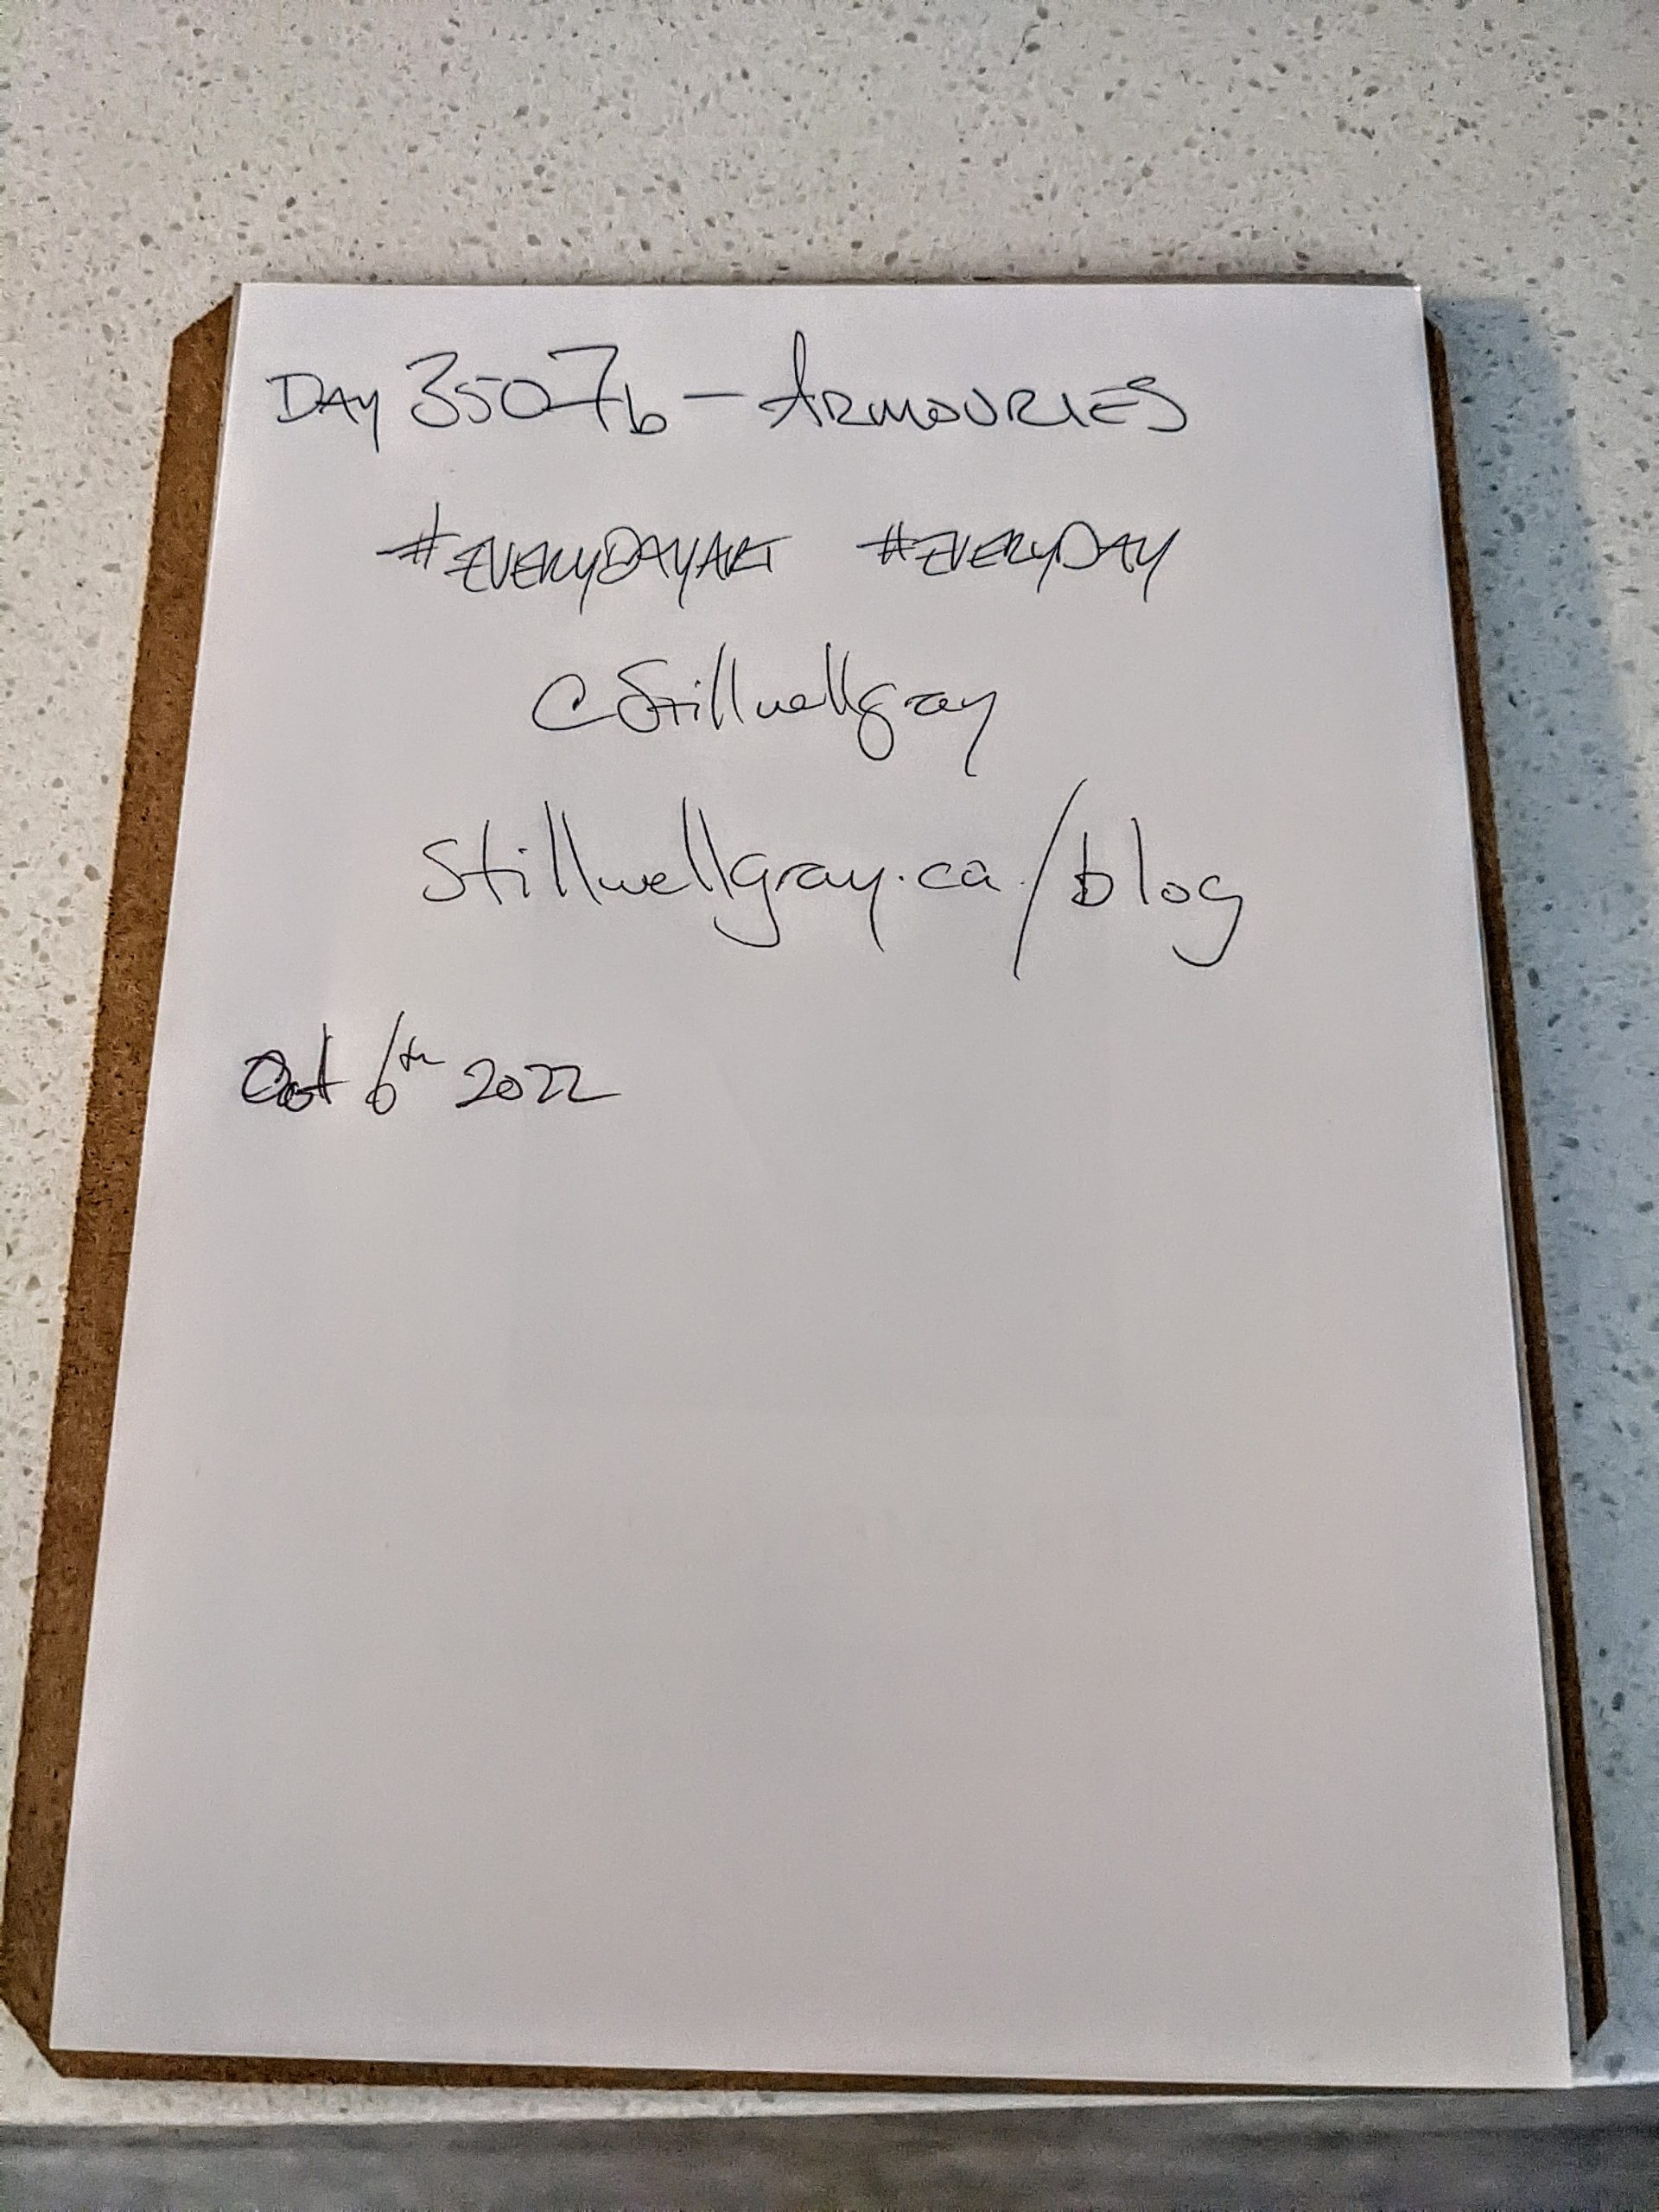 DAY 3507b - ARMOURIES
#EVERYDAYART #EVERYDAY
@Stillwellgray
stillwellgray.ca/blog
Oct 6th 2022